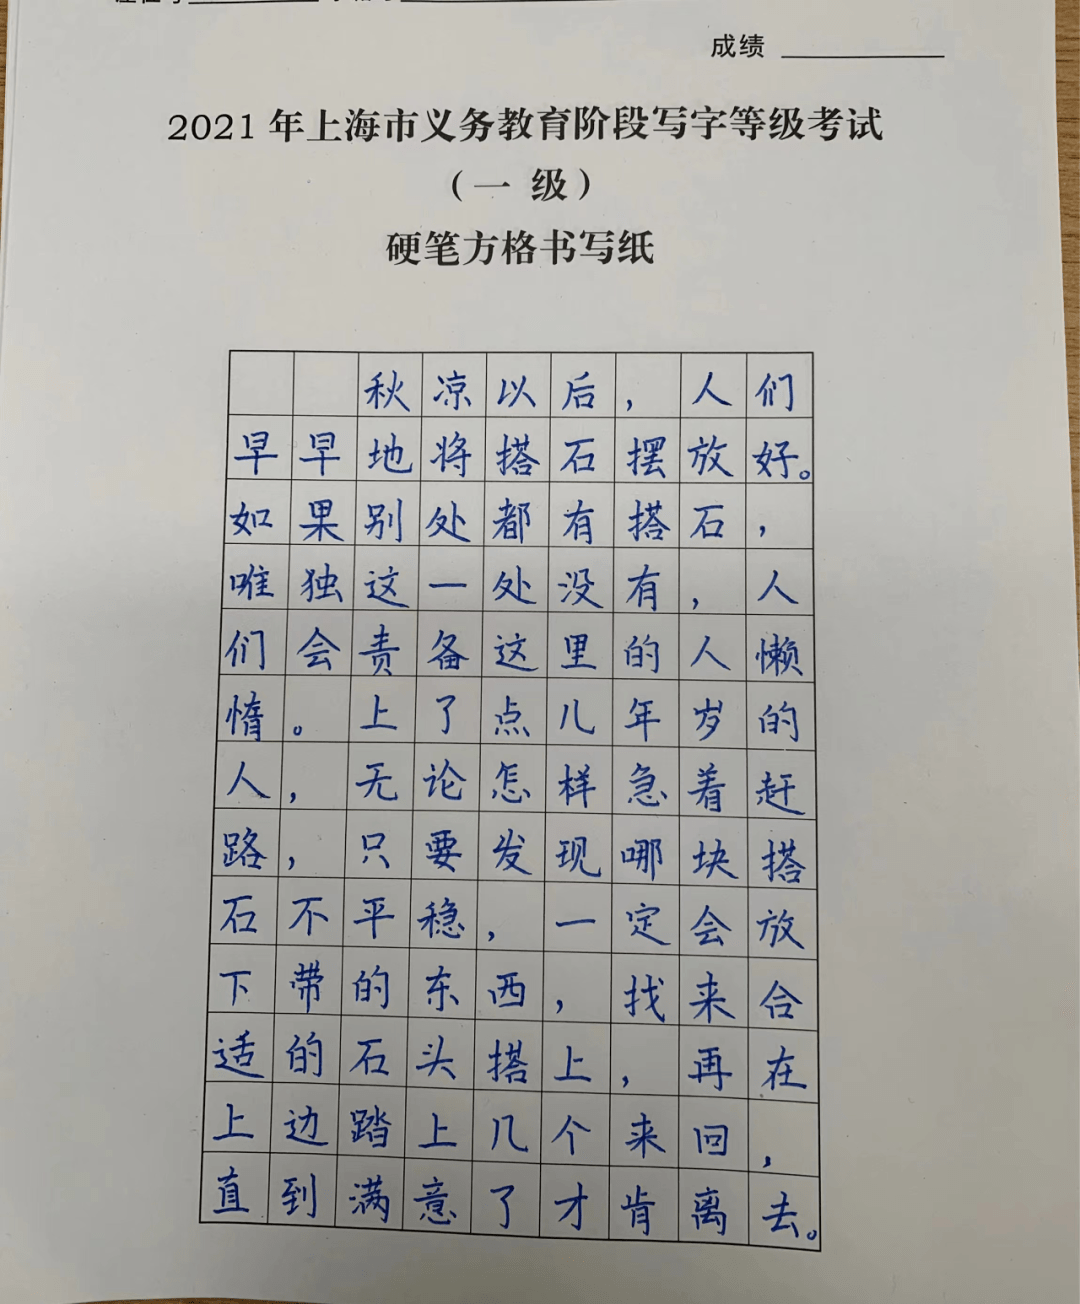 成绩
2021年上海市义务教育阶段写字等级考试
（一 级）
硬笔方格书写纸
秋凉以后，人们
早早地将搭石摆放好。
如果别处都有搭石，
唯独这一处没有，人
们会责备这里的人懒
惰。上了点儿年岁的
人，无论怎样急着赶
路，只要发现哪块搭
石不平稳，一定会放
下带的东西，找来合
适的石头搭上，再在
上边踏上几个来回，
直到满意了才肯离去。